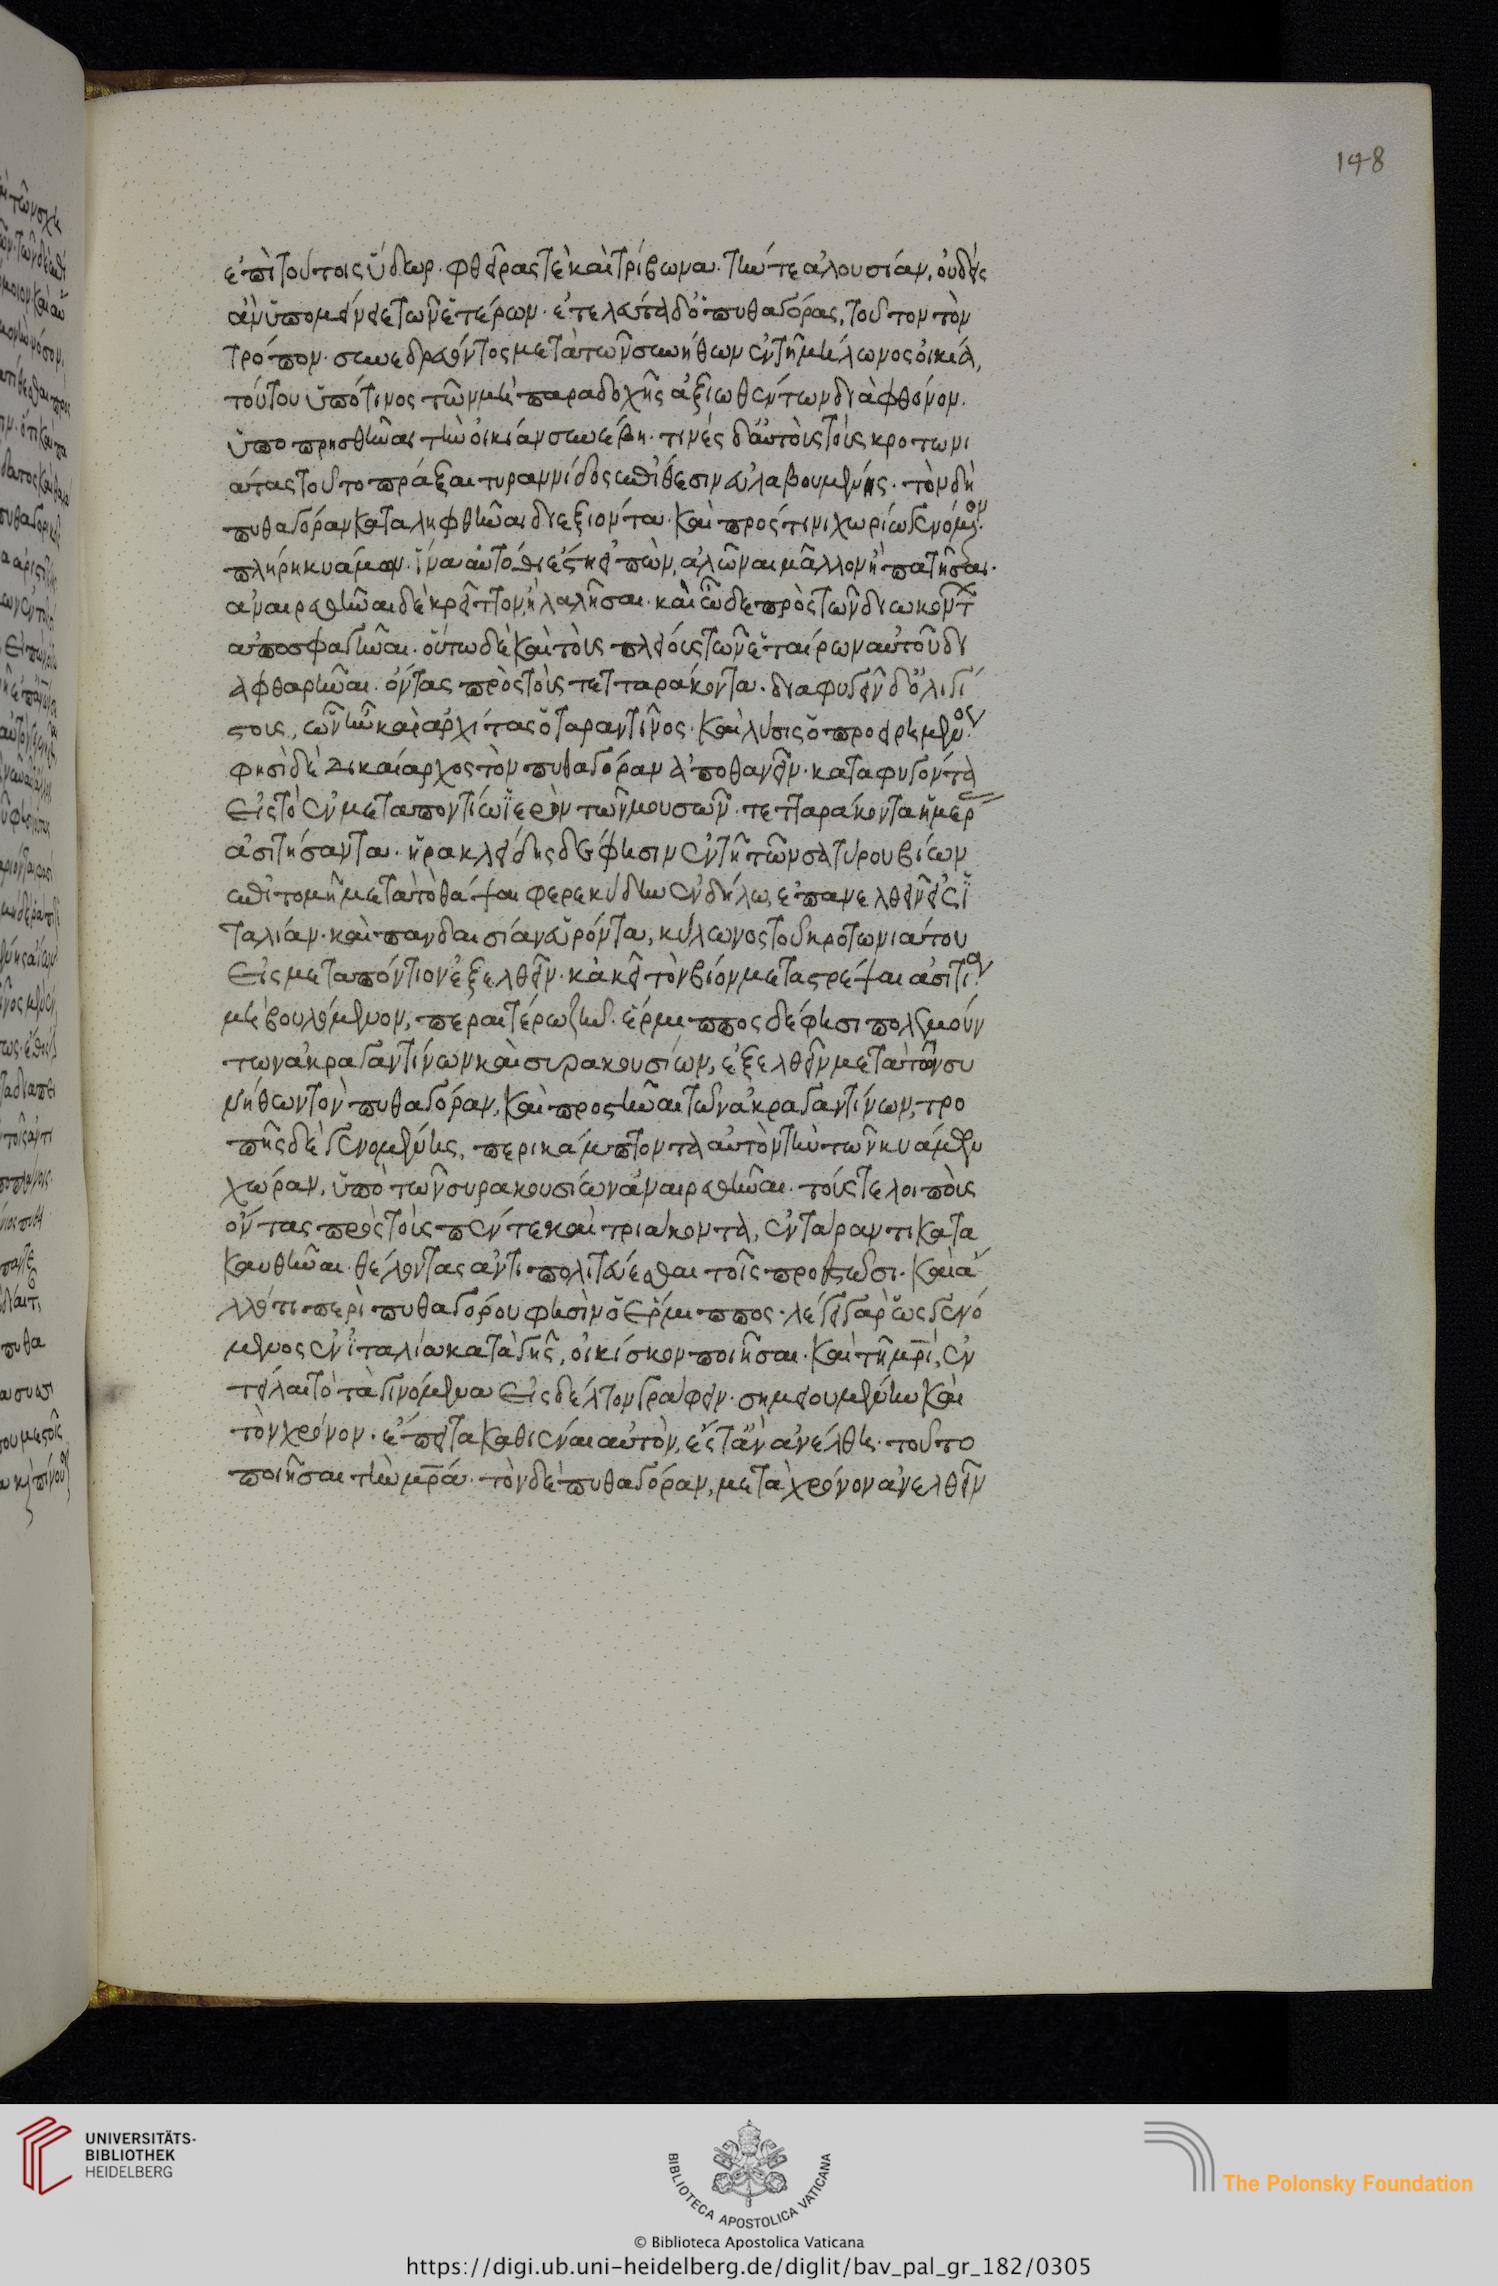 148
ἐπὶ τούτοις ὕδωρ· φθεῖρας τὲ καὶ τρίβωνα· τήν τε ἀλουσίαν, οὐδεὶς
ἂν ὑπομείνειε τῶν ἑτέρων· ἐτελεύτα δ ὁ πυθαγόρας, τοῦτον τὸν
τρόπον· συνεδρεύοντος μετὰ τῶν συνήθων ἐν τῆ μύλωνος οἰκία,
τούτου ὑπό τινος τῶν μὴ παραδοχῆς ἀξιωθέντων διὰ φθόνον.
ὑποπρησθῆναι τὴν οἰκίαν συνέβη· τινές δ αὐτοὺς τοὺς κροτωνι
άτας τοῦτο πράξαι τυραννίδος ἐπίθεσιν εὐλαβουμένους· τὸν δὴ
πυθαγόραν καταληφθῆναι διεξιόντα· καὶ πρός τινι χωρίω γενόμενον
πλήρη κυάμων· ἵνα αὐτόθι ἔστη εἰπὼν, ἁλῶναι μᾶλλον ἢ πατῆσαι·
ἀναιρεθῆναι δὲ κρεῖττον ἢ λαλῆσαι· καὶ ὧδε πρὸς τῶν διωκόντ
ἀποσφαγῆναι· οὕτω δὲ καὶ τοὺς πλείους τῶν ἑταίρων αὐτοῦ δι
αφθαρῆναι· ὄντας πρὸς τοὺς τετταράκοντα· διαφυγεῖν δ ὀλιγί
στους, ὧν ἦν καὶ ἀρχίτας ὁ ταραντῖνος· καὶ λύσις ὁ προειρημένος·
φησὶ δὲ δικαίαρχος τὸν πυθαγόραν ἀποθανεῖν· καταφυγόντα
εἰς τὸ ἐν μεταποντίω ἱερὸν τῶν μουσῶν· τετταράκοντα ἡμέρ
ἀσιτήσαντα· ἡρακλείδης δέ φησιν ἐν τῆ τῶν σατύρου βίων
ἐπιτομῆ μετὰ τὸ θάψαι φερεκύδην ἐν δήλω, ἐπανελθεῖν εἰς ἰ
ταλίαν· καὶ πανδαισίαν εὑρόντα, κύλωνος τοῦ κροτωνιάτου
εἰς μεταπόντιον ἐξελθεῖν· κἀκεῖ τὸν βίον μεταστρέψαι ἀσιτία
μὴ βουλόμενον, περαιτέρω ζῆν· ἕρμιππος δέ φησι πολεμούν
των ἀκραγαντίνων καὶ συρακουσίων, ἐξελθεῖν μετὰ τῶν συ
νήθων τὸν πυθαγόραν, καὶ προστῆναι τῶν ἀκραγαντίνων, τρο
πῆς δὲ γενομένης, περικάμπτοντα αὐτὸν τὴν τῶν κυάμων
χώραν, ὑπὸ τῶν συρακουσίων ἀναιρεθῆναι· τούς τε λοιποὺς
ὄντας πρὸς τοὺς πέντε καὶ τριάκοντα, ἐν τάραντι κατα
καυθῆναι· θέλοντας ἀντιπολιτεύεσθαι τοῖς προεστῶσι· καὶ ἄ
λλό τι περὶ πυθαγόρου φησὶν ὁ ἕρμιππος· λέγει γὰρ ὡς γενό
μενος ἐν ἰταλία κατὰ γῆς, οἰκίσκον ποιῆσαι· καὶ τῆ μρί, ἐν
τείλαιτο τὰ γινόμενα εἰς δέλτον γράφειν· σημειουμένην καὶ
τὸν χρόνον· ἔπειτα καθιέναι αὐτὸν, ἔστ ἂν ἀνέλθη· τοῦτο
ποιῆσαι τὴν μρά· τὸν δὲ πυθαγόραν, μετὰ χρόνον ἀνελθεῖν
UNIVERSITÄTS-
BIBLIOTHEK
HEIDELBERG
BIBLIOTECA APOSTOLICA VATICANA
The Polonsky Foundation
© Biblioteca Apostolica Vaticana
https://digi.ub.uni-heidelberg.de/diglit/bav_pal_gr_182/0305